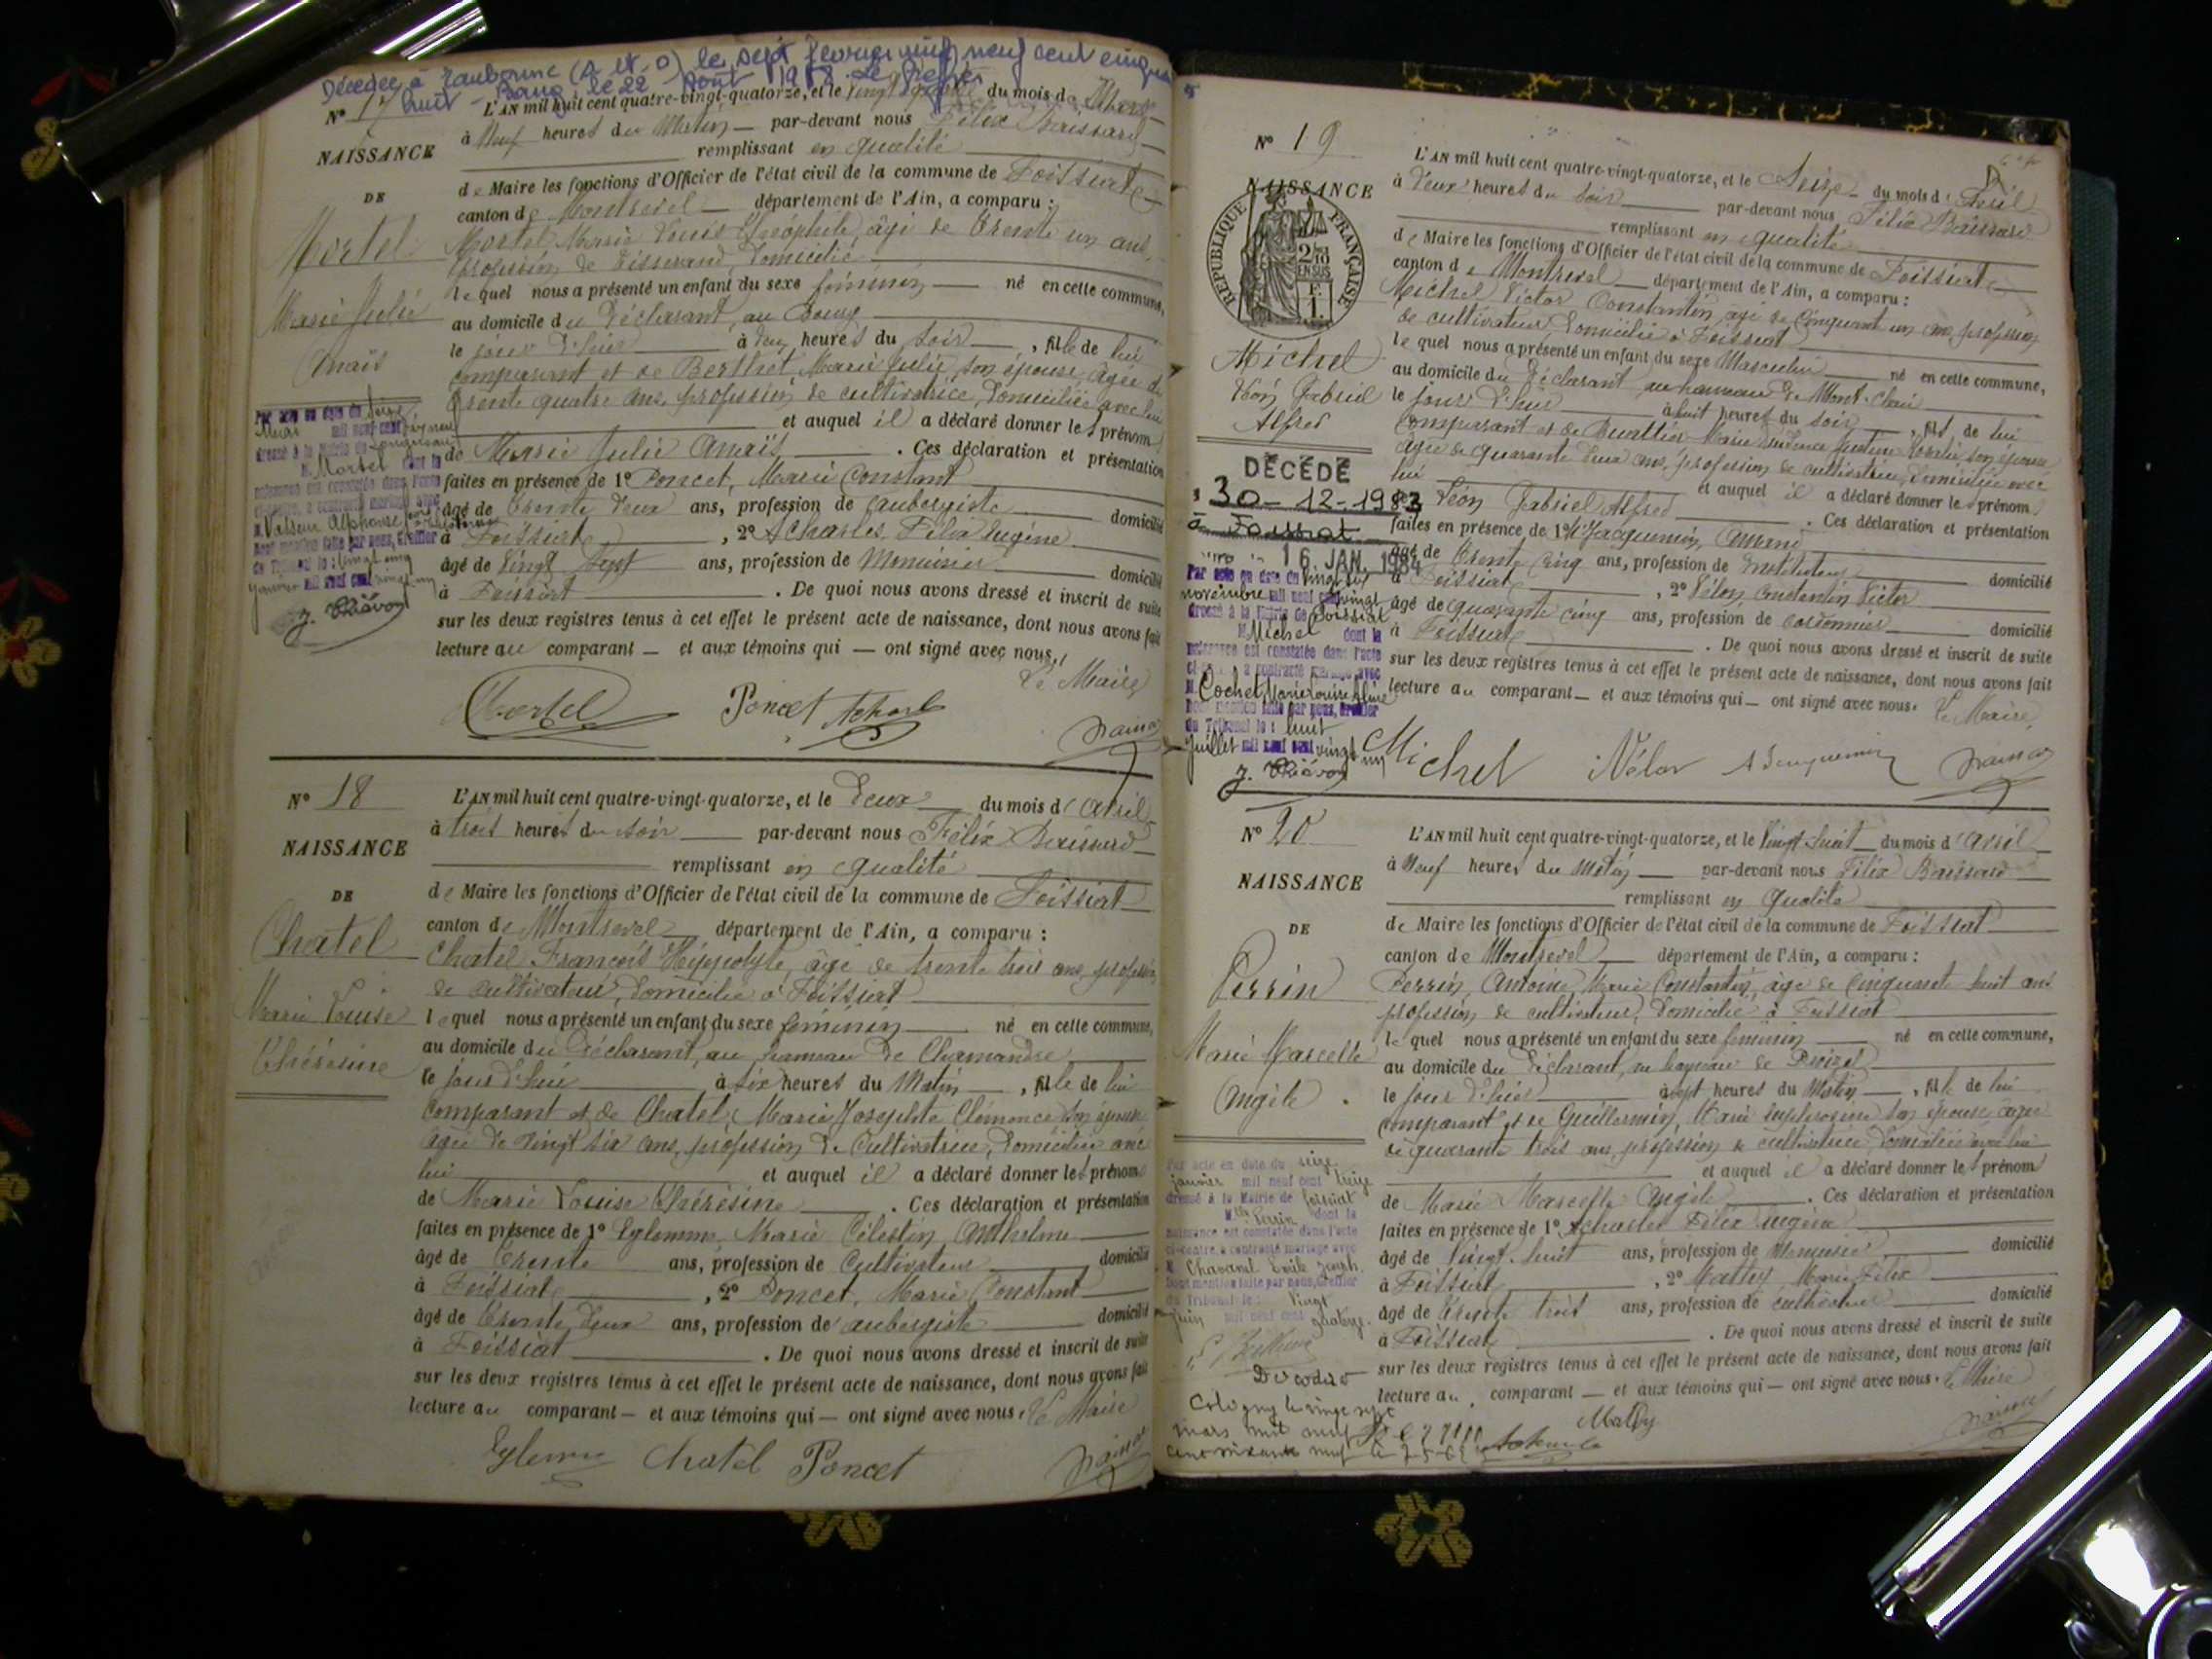 Décédée à Eaubonne (S. et. O) le sept février mil neuf cent cinqua
huit - Bourg, le 22 Août 1958. Le Greffier
N° 17
NAISSANCE
DE
Mortel
Marie Julie
Anaïs
L'AN mil huit cent quatre-vingt-quatorze, et le Vingt du mois de Mars
à Neuf heures du Matin par-devant nous Félix Baissard
remplissant en qualité
de Maire les fonctions d'Officier de l'état civil de la commune de Foissiat
canton de Montrevel département de l'Ain, a comparu :
Mortel Marie Louis Théophile, âgé de trente un ans,
profession de Tisserand, domicilié
lequel nous a présenté un enfant du sexe féminin né en cette commune,
au domicile du déclarant, au Bourg
le jour d'hier à deux heures du soir, fille de lui
comparant et de Berthet Marie Julie, son épouse, âgée de
trente quatre ans, profession de cultivatrice, domiciliée avec lui
et auquel il a déclaré donner les prénoms
de Marie Julie Anaïs. Ces déclaration et présentation
faites en présence de 1° Poncet, Marie Constant
âgé de trente deux ans, profession de aubergiste domicilié
à Foissiat, 2° Acharles, Félix Eugène
âgé de Vingt sept ans, profession de Menuisier domicilié
à Foissiat. De quoi nous avons dressé et inscrit de suite
sur les deux registres tenus à cet effet le présent acte de naissance, dont nous avons fait
lecture au comparant — et aux témoins qui — ont signé avec nous.
Le Maire
Mortel Poncet Acharles
Par acte en date du seize
Mars mil neuf cent
dressé à la Mairie de
M Mortel dont la
naissance est constatée dans l'acte
ci-contre, a contracté mariage avec
M Vasseur Alphonse
Dont mention faite par nous, Greffier
du Tribunal le : vingt cinq
janvier mil neuf cent vingt un
N° 18
NAISSANCE
DE
Chatel
Marie Louise
Thérésine
L'AN mil huit cent quatre-vingt-quatorze, et le Deux du mois d'avril
à trois heures du soir par-devant nous Félix Baissard
remplissant en qualité
de Maire les fonctions d'Officier de l'état civil de la commune de Foissiat
canton de Montrevel département de l'Ain, a comparu :
Chatel François Hippolyte, âgé de trente trois ans, profession
de cultivateur, domicilié à Foissiat
lequel nous a présenté un enfant du sexe féminin né en cette commune,
au domicile du déclarant, au hameau de Chamandre
le jour d'hui à six heures du Matin, fille de lui
comparant et de Chatel, Marie Josephte Clémence son épouse
âgée de vingt six ans, profession de Cultivatrice, domiciliée avec
lui et auquel il a déclaré donner les prénoms
de Marie Louise Thérésine. Ces déclaration et présentation
faites en présence de 1° Eglemme, Marie Célestin, Anthelme
âgé de trente ans, profession de Cultivateur domicilié
à Foissiat, 2° Poncet, Marie Constant
âgé de trente deux ans, profession de aubergiste domicilié
à Foissiat. De quoi nous avons dressé et inscrit de suite
sur les deux registres tenus à cet effet le présent acte de naissance, dont nous avons fait
lecture au comparant — et aux témoins qui — ont signé avec nous. Le Maire
Chatel Poncet
N° 19
NAISSANCE
RÉPUBLIQUE FRANÇAISE
2/10 EN SUS
F. 1.
Michel
Léon Gabriel
Alfred
L'AN mil huit cent quatre-vingt-quatorze, et le Seize du mois d'Avril
à Deux heures du soir par-devant nous Félix Baissard
remplissant en qualité
de Maire les fonctions d'Officier de l'état civil de la commune de Foissiat
canton de Montrevel département de l'Ain, a comparu :
Michel Victor Constantin, âgé de Cinquante un ans, profession
de cultivateur domicilié à Foissiat
lequel nous a présenté un enfant du sexe Masculin né en cette commune,
au domicile du déclarant au hameau de
le jour d'hier à huit heures du soir, fils de lui
comparant et de Marie son épouse
âgée de quarante deux ans, profession de cultivatrice, domiciliée avec
lui et auquel il a déclaré donner les prénoms
de Léon Gabriel Alfred. Ces déclaration et présentation
faites en présence de 1° Jacquemin,
âgé de trente Cinq ans, profession de Instituteur domicilié
à Foissiat, 2° Vélon, Constantin Victor
âgé de quarante cinq ans, profession de domicilié
à Foissiat. De quoi nous avons dressé et inscrit de suite
sur les deux registres tenus à cet effet le présent acte de naissance, dont nous avons fait
lecture au comparant — et aux témoins qui — ont signé avec nous. Le Maire
Michel
DÉCÉDÉ
30-12-1983
à Foissiat
16 JAN. 1984
Par acte en date du vingt six
novembre mil neuf cent vingt
dressé à la Mairie de Foissiat
M Michel dont la
naissance est constatée dans l'acte
ci-contre, a contracté mariage avec
M. Cochet Marie Louise
Dont mention faite par nous, Greffier
du Tribunal le : huit
juillet mil neuf cent vingt un
N° 20
NAISSANCE
DE
Perrin
Marie Marcelle
Angèle
L'AN mil huit cent quatre-vingt-quatorze, et le Vingt huit du mois d'avril
à Neuf heures du Matin par-devant nous Félix Baissard
remplissant en qualité
de Maire les fonctions d'Officier de l'état civil de la commune de Foissiat
canton de Montrevel département de l'Ain, a comparu :
Perrin, Antoine, Marie Constantin, âgé de Cinquante huit ans
profession de cultivateur, domicilié à Foissiat
lequel nous a présenté un enfant du sexe féminin né en cette commune,
au domicile du déclarant, au hameau de
le jour d'hier à sept heures du Matin, fille de lui
comparant et de Guillermin, Marie son épouse âgée
de quarante trois ans, profession de cultivatrice, domiciliée avec lui
et auquel il a déclaré donner les prénoms
de Marie Marcelle Angèle. Ces déclaration et présentation
faites en présence de 1° Acharles Félix Eugène
âgé de Vingt-huit ans, profession de Menuisier domicilié
à Foissiat, 2° Mathy, Marie Félix
âgé de trente trois ans, profession de cultivateur domicilié
à Foissiat. De quoi nous avons dressé et inscrit de suite
sur les deux registres tenus à cet effet le présent acte de naissance, dont nous avons fait
lecture au comparant — et aux témoins qui — ont signé avec nous. Le Maire
Mathy
Par acte en date du seize
janvier mil neuf cent treize
dressé à la Mairie de Foissiat
Mlle Perrin dont la
naissance est constatée dans l'acte
ci-contre, a contracté mariage avec
M. Chavanel Emile Joseph.
Dont mention faite par nous, Greffier
du Tribunal le : Vingt
juin mil neuf cent quatorze.
Décédée
Coligny le vingt sept
mars mil neuf
cent soixante neuf